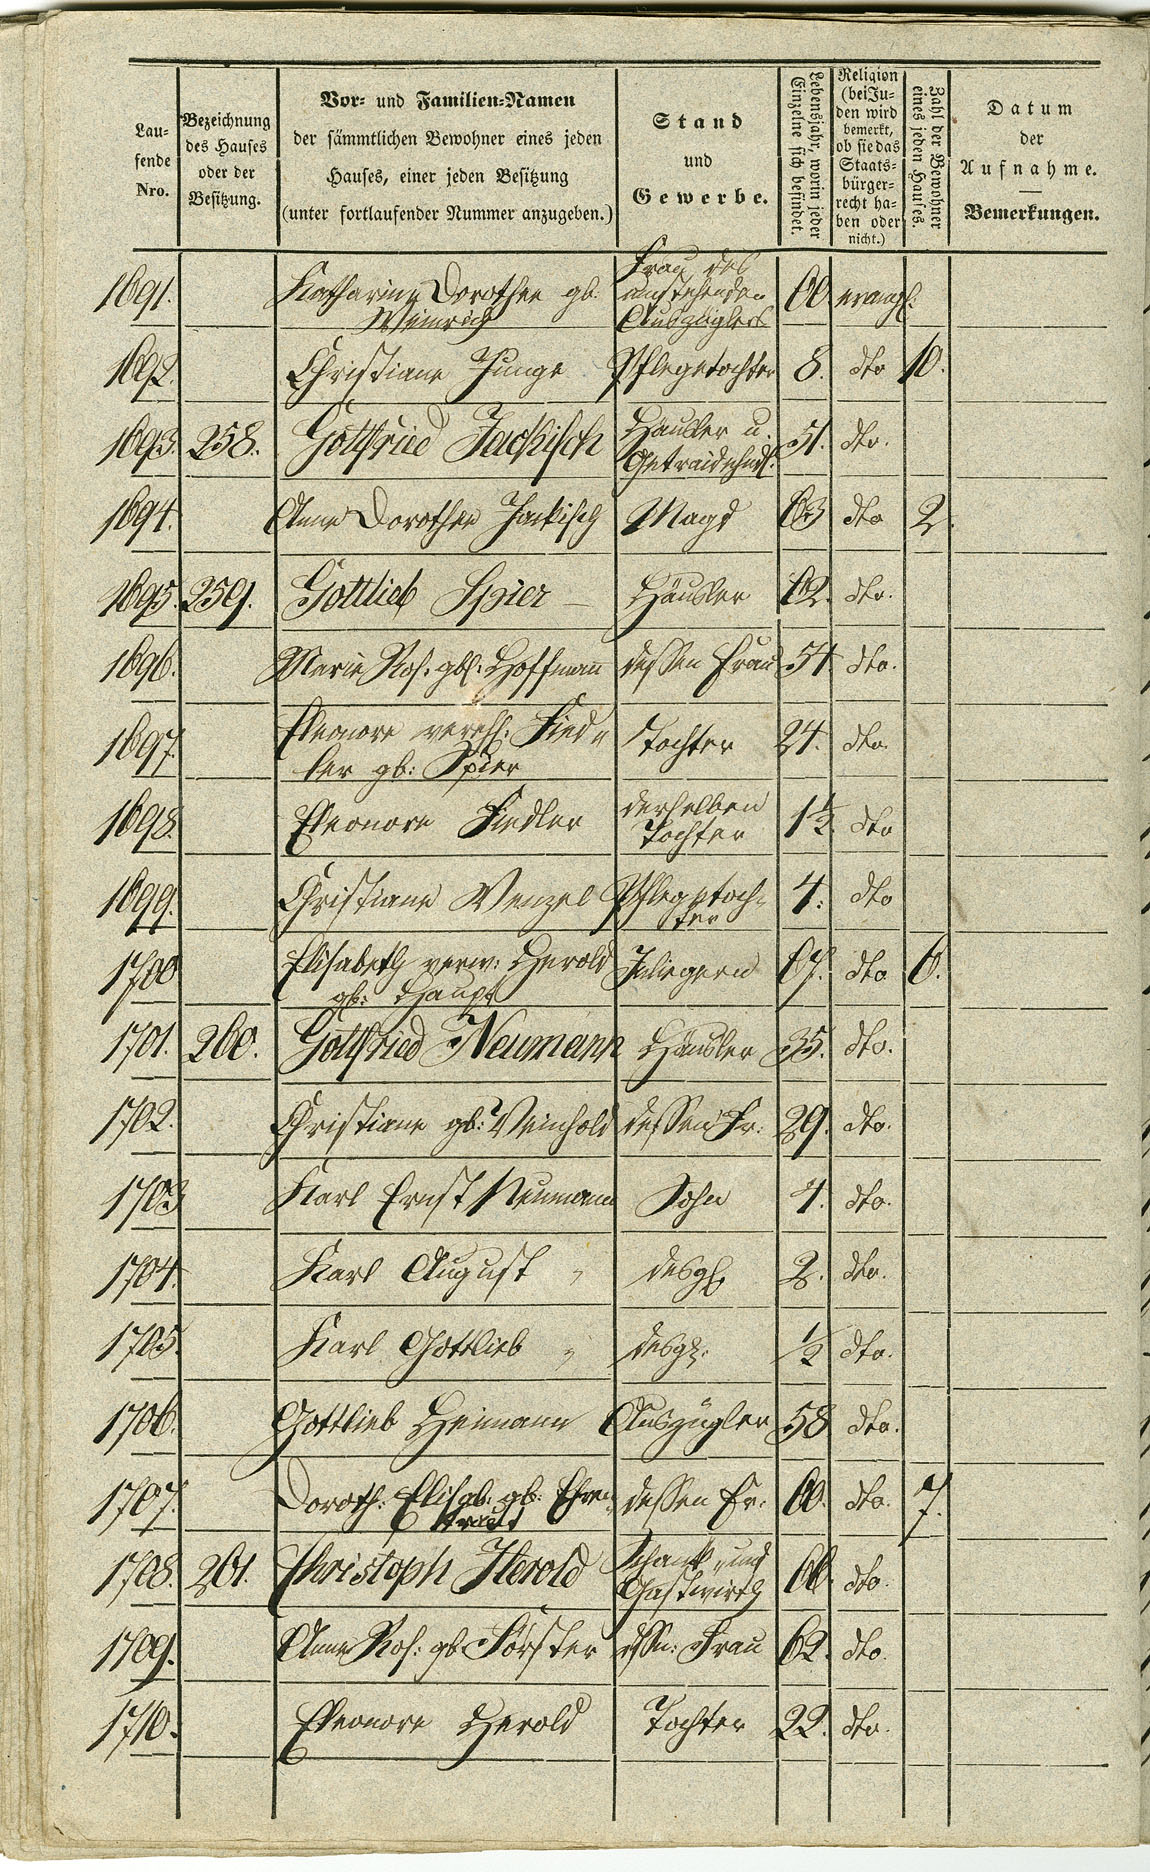 Lau-
fende
Nro.
Bezeichnung
des Hauses
oder der
Besitzung.
Vor- und Familien-Namen
der sämmtlichen Bewohner eines jeden
Hauses, einer jeden Besitzung
(unter fortlaufender Nummer anzugeben.)
Stand
und
Gewerbe.
Lebensjahr, worin jeder
Einzelne sich befindet.
Religion
(bei Ju-
den wird
bemerkt,
ob sie das
Staats-
bürger-
recht ha-
ben oder
nicht.)
Zahl der Bewohner
eines jeden Hauses.
Datum
der
Aufnahme.
Bemerkungen.
1691. Katharina Dorothea gb. Weinrich Frau des umstehenden Auszüglers 60 evangl.
1692. Christiane Junge Pflegetochter 8. dto 10.
1693. 258. Gottfried Jackisch Häusler u. Getraidehndl. 51. dto.
1694. Anne Dorothea Jackisch Magd 63 dto 2.
1695. 259. Gottlieb Spier Häusler 62. dto.
1696. Marie Ros. gb. Hoffmann dessen Frau 54. dto.
1697. Eleonore verehl. Fied-
ler gb: Spier Tochter 24. dto.
1698. Eleonore Fiedler derselben Tochter 1½. dto
1699. Christiane Wenzel Pflegetoch-
ter 4. dto
1700 Elisabeth verw: Herold
gb: Haupt Inliegerin 67. dto 6.
1701. 260. Gottfried Neumann Häusler 35. dto.
1702. Christiane gb: Weinhold dessen Fr. 29. dto.
1703 Karl Ernst Neumann Sohn 4. dto.
1704. Karl August " desgl. 2. dto.
1705. Karl Gottlieb " desgl. ½ dto.
1706. Gottlieb Heimann Auszügler 58 dto.
1707. Doroth: Elisab: gb: Ehren-
traut dessen Fr. 60. dto. 7.
1708. 261. Christoph Herold Schank- und Gastwirth 66. dto.
1709. Anne Ros: gb Förster dssn: Frau 62. dto.
1710. Eleonore Herold Tochter 22. dto.